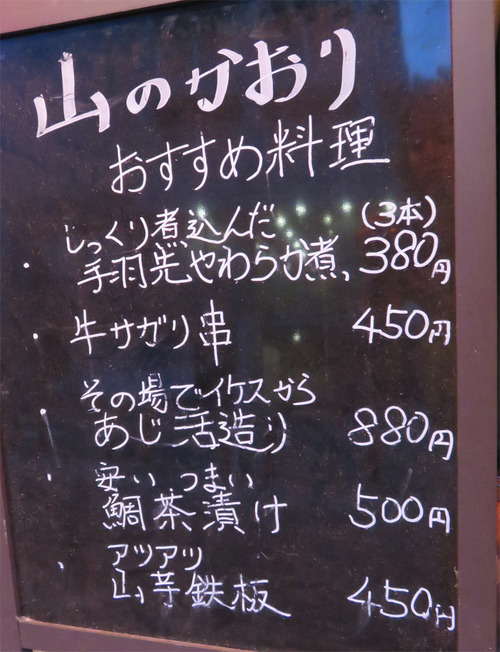 山のかおり
おすすめ料理
じっくり煮込んだ (3本)
・手羽先やわらか煮 380円
・牛サガリ串 450円
その場でイケスから
・あじ活造り 880円
安い うまい
・鯛茶漬け 500円
アツアツ
・山芋鉄板 450円